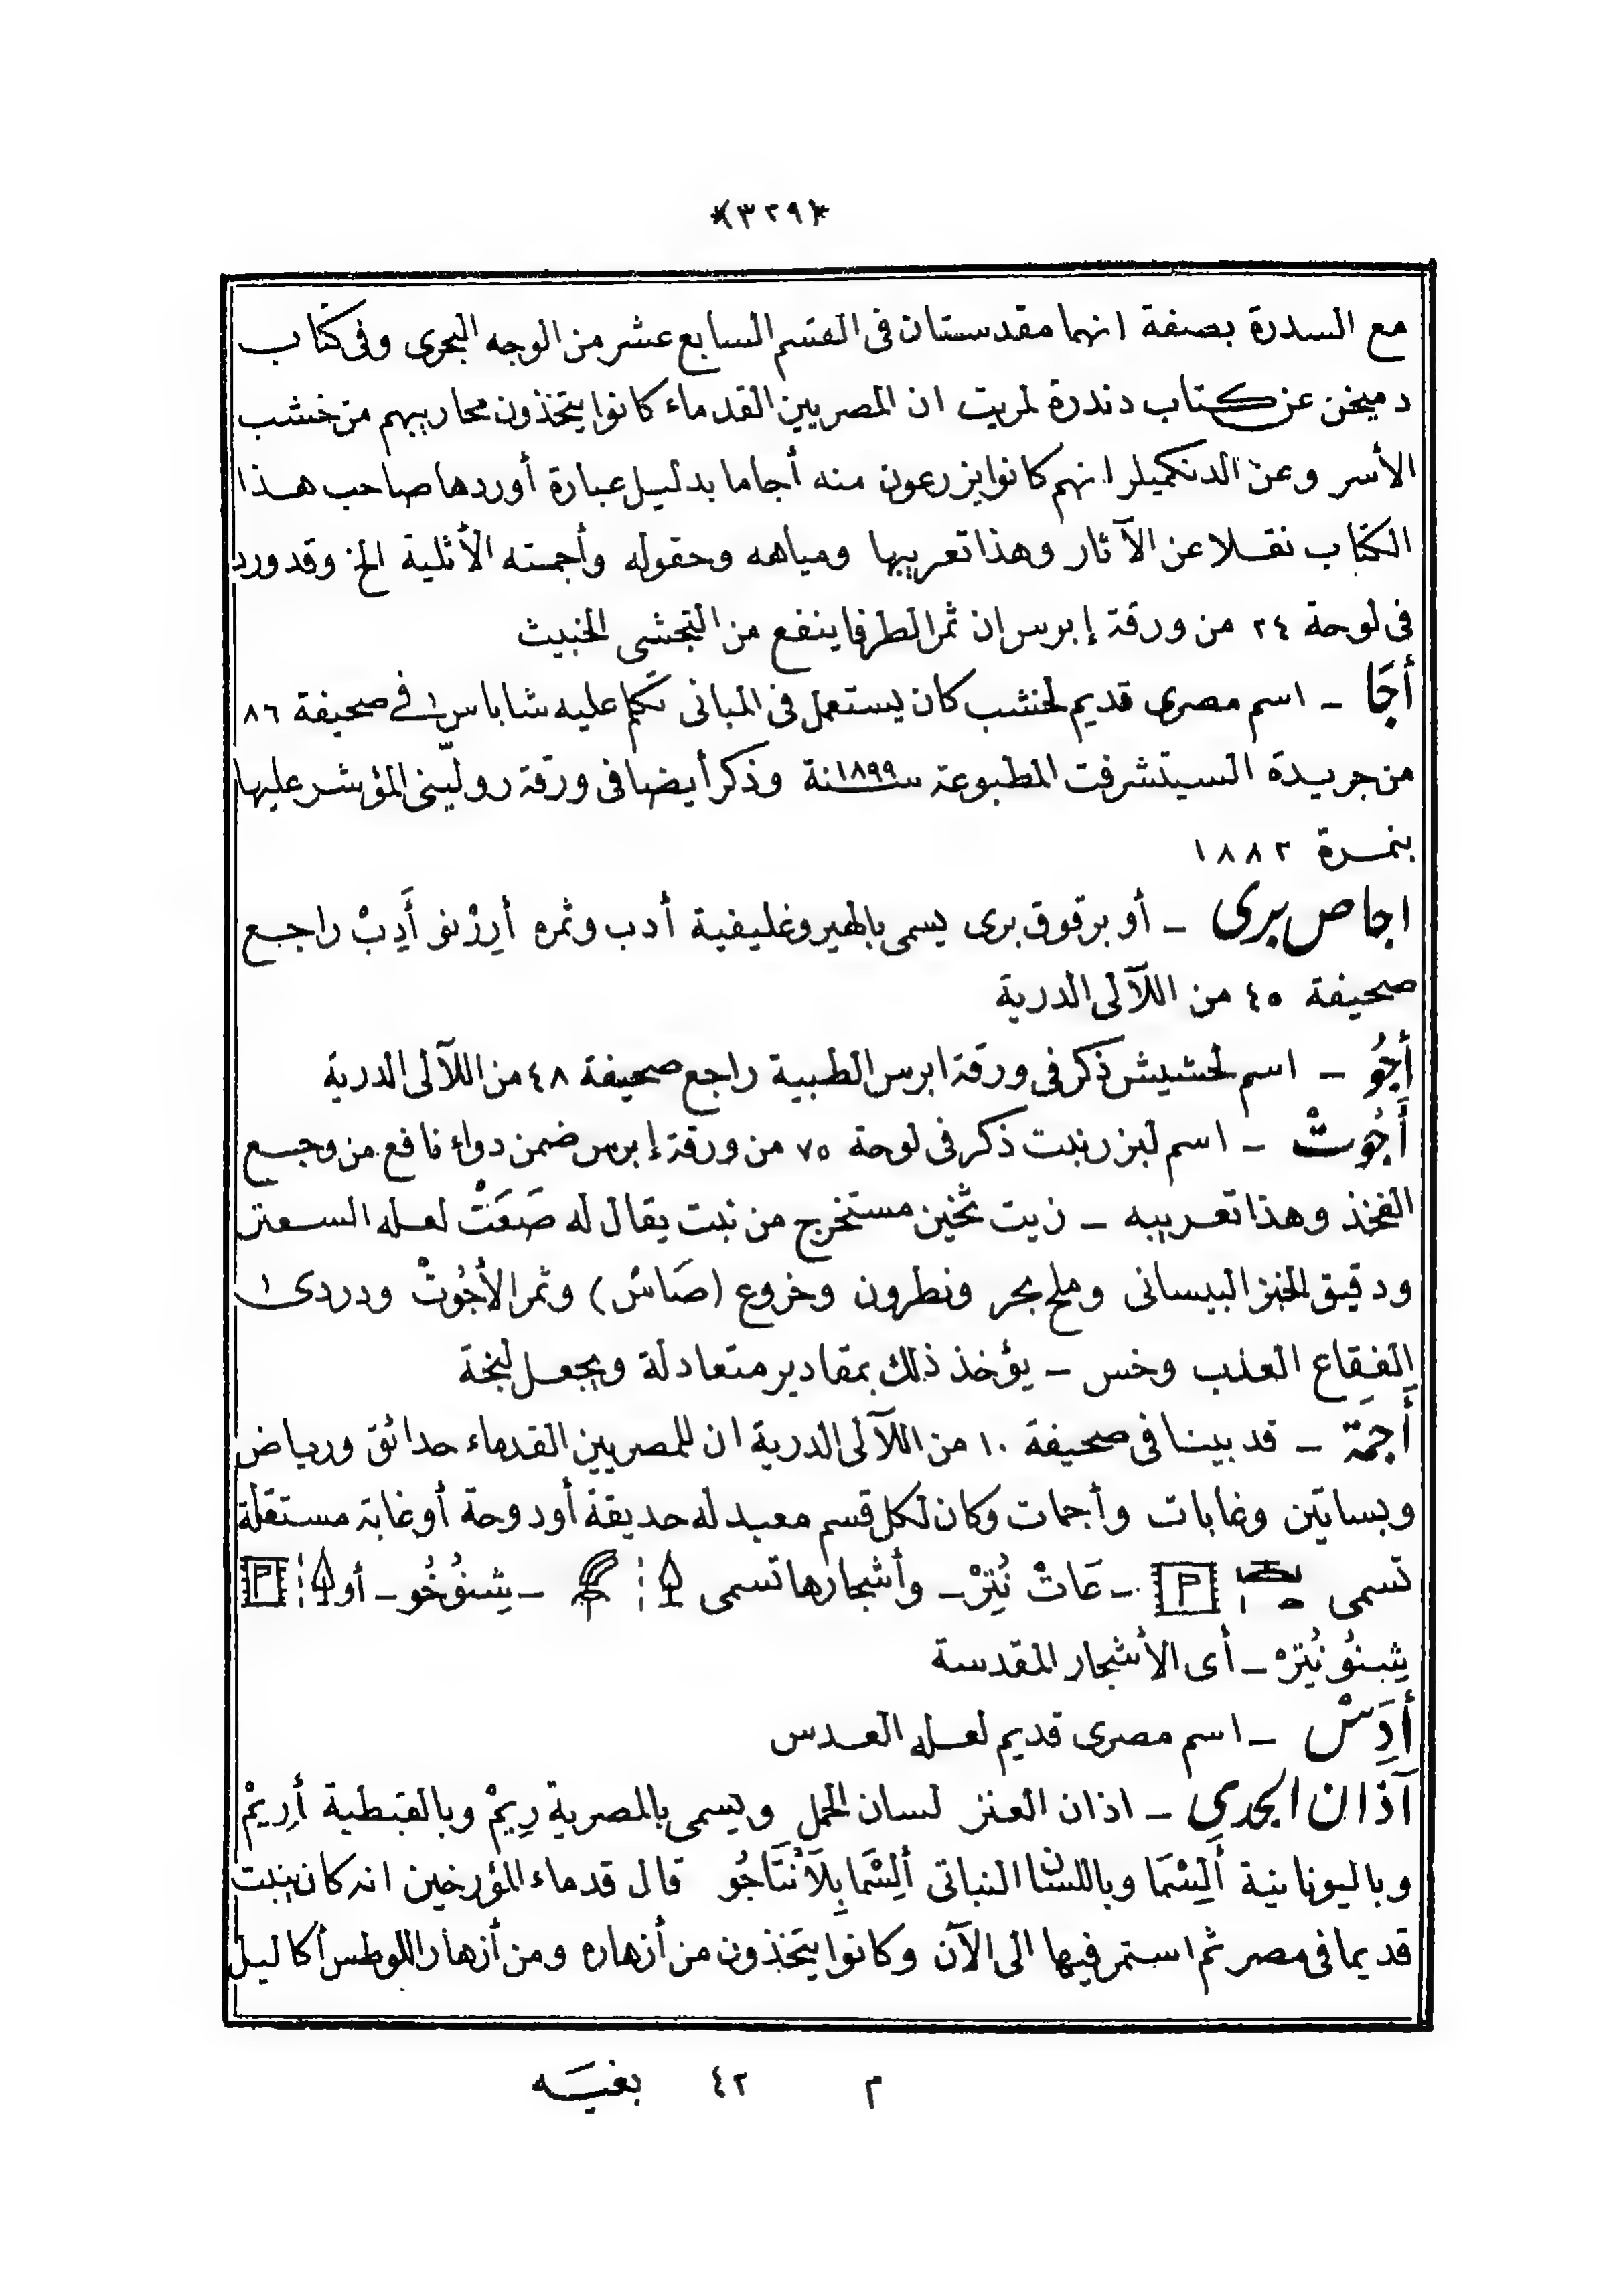 *(٣٢٩)*
مع السدرة بصفة انهما مقدستان فى القسم السابع عشر من الوجه البحرى وفى كتاب
دميخن عن كتاب دندرة لمريت ان المصريين القدماء كانوا يتخذون محاريبهم من خشب
الأسر وعن الدنكميلر انهم كانوا يزرعون منه أجاما بدليل عبارة أوردها صاحب هذا
الكتاب نقلا عن الآثار وهذا تعريبها ومياهه وحقوله وأجمته الأثلية الخ وقد ورد
فى لوحة ٢٤ من ورقة إبرس ان ثمر الطرفا ينفع من التجشى الخبيث
أَجَا ـ اسم مصرى قديم لخشب كان يستعمل فى المبانى تكلم عليه شاباس فى صحيفة ٨٦
من جريدة السيتشرفت المطبوعة سنة ١٨٩٩ وذكر أيضا فى ورقة رولينى المؤشر عليها
بنمرة ١٨٨٢
اجاص برى ـ أو برقوق برى يسمى بالهيروغليفية أدب وثمره أَرِرْنو أَدِبْ راجع
صحيفة ٤٥ من اللآلى الدرية
أَجُو ـ اسم لحشيش ذكر فى ورقة ابرس الطبية راجع صحيفة ٤٨ من اللآلى الدرية
أَجُوتْ ـ اسم لبزر نبت ذكر فى لوحة ٧٥ من ورقة إبرس ضمن دواء نافع من وجع
الفخذ وهذا تعريبه ـ زيت ثخين مستخرج من نبت يقال له صَعَتْ لعله السعتر
ودقيق الخبز البيسانى وملح بحر ونطرون وخروع (صَاسْ) وثمر الأَجُوتْ ودردى
الفقاع العذب وخس ـ يؤخذ ذلك بمقادير متعادلة ويجعل لبخة
أَجَمَة ـ قد بينا فى صحيفة ١٠ من اللآلى الدرية ان للمصريين القدماء حدائق ورياض
وبساتين وغابات وأجمات وكان لكل قسم معبد له حديقة أو دوحة أو غابة مستقلة
تسمى ـ عَاتْ نُتِرْ ـ وأشجارها تسمى ـ شِنُوخُو ـ أو
شِنُو نُتِرْ ـ أى الأشجار المقدسة
أَدِسْ ـ اسم مصرى قديم لعله العدس
آذان الجدى ـ اذان العنز لسان الحمل ويسمى بالمصرية رِيمْ وبالقبطية أَرِيمْ
وباليونانية أَلِسْمَا وباللسان النباتى أَلِسْمَا بِلَانْتَاجُو قال قدماء المؤرخين انه كان ينبت
قديما فى مصر ثم استمر فيها الى الآن وكانوا يتخذون من أزهاره ومن أزهار اللوطس أكاليل
م ٤٢ بغيه